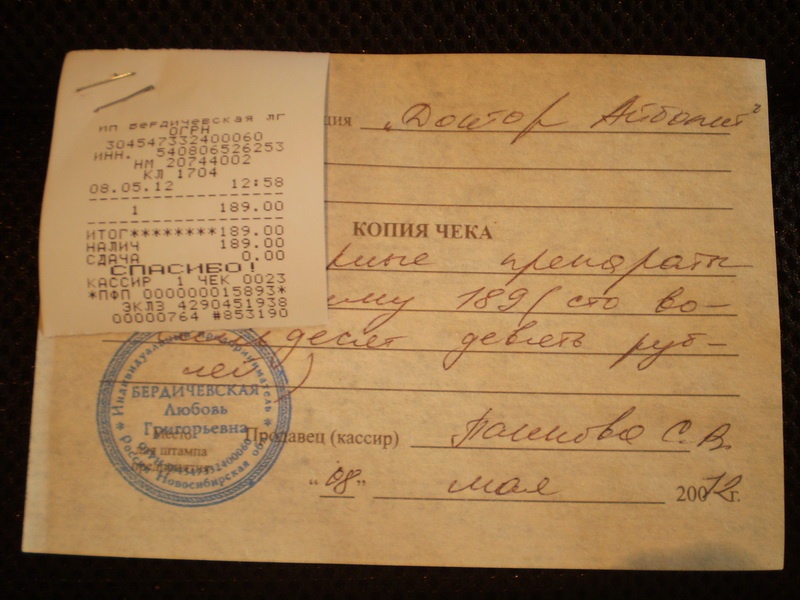 ИП БЕРДИЧЕВСКАЯ ЛГ
ОГРН
304547332400060
ИНН. 540806526253
НМ 20744002
КЛ 1704
08.05.12 12:58
1 189.00
ИТОГ********189.00
НАЛИЧ 189.00
СДАЧА 0.00
СПАСИБО!
КАССИР 1 ЧЕК 0023
*ПФП 000000015893*
ЭКЛЗ 4290451938
00000764 #853190
ция „Доктор Айболит"
КОПИЯ ЧЕКА
препараты
189 (сто во-
десят девять руб-
лей)
Индивидуальный предприниматель
БЕРДИЧЕВСКАЯ
Любовь
Григорьевна
ОГРН 304547332400060
Россия Новосибирская об
Место
для штампа
предприятия
Продавец (кассир) С.В.
“08” мая 2012г.